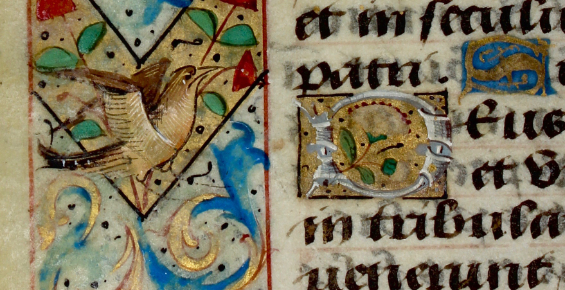 et in secul
patri. S
Deus
et v
in tribula
uenerunt